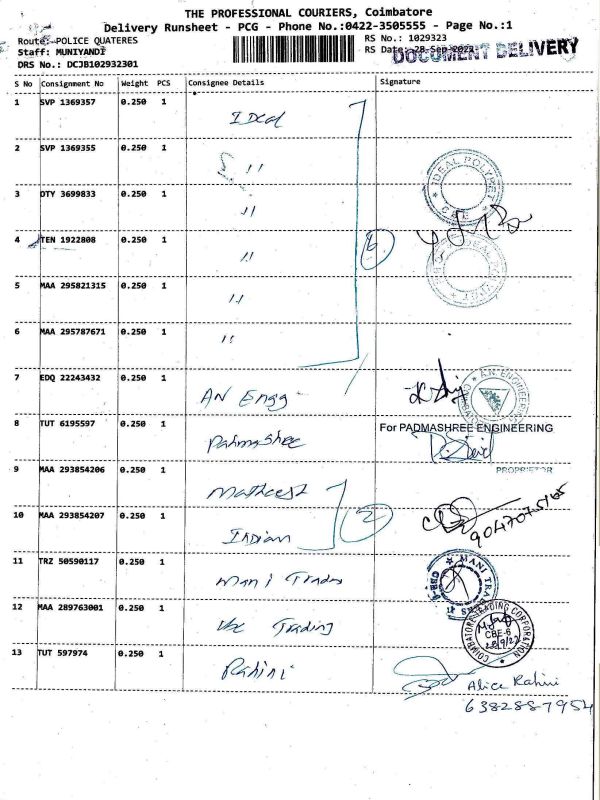 THE PROFESSIONAL COURIERS, Coimbatore
Delivery Runsheet - PCG - Phone No.:0422-3505555 - Page No.:1
Route: POLICE QUATERES
RS No.: 1029323
Staff: MUNIYANDI
RS Date: 28-Sep-2022
DOCUMENT DELIVERY
DRS No.: DCJB102932301
S No Consignment No Weight PCS Consignee Details Signature
1 SVP 1369357 0.250 1 IDeal
2 SVP 1369355 0.250 1 "
IDEAL POLYMET
CBE
3 DTY 3699833 0.250 1 "
4 TEN 1922808 0.250 1 " 6
5 MAA 295821315 0.250 1 "
6 MAA 295787671 0.250 1 "
7 EDQ 22243432 0.250 1 AN Engg
A.N. ENGINEERING
8 TUT 6195597 0.250 1 Padmashree
For PADMASHREE ENGINEERING
PROPRIETOR
9 MAA 293854206 0.250 1
10 MAA 293854207 0.250 1 Indian 2
11 TRZ 50590117 0.250 1 Mani Trades
MANI TRA
CBE-6
12 MAA 289763001 0.250 1 Trading
COIMBATORE TRADING CORPORATION
CBE-6
13 TUT 597974 0.250 1 Rahini
Alice Rahini
6382887954